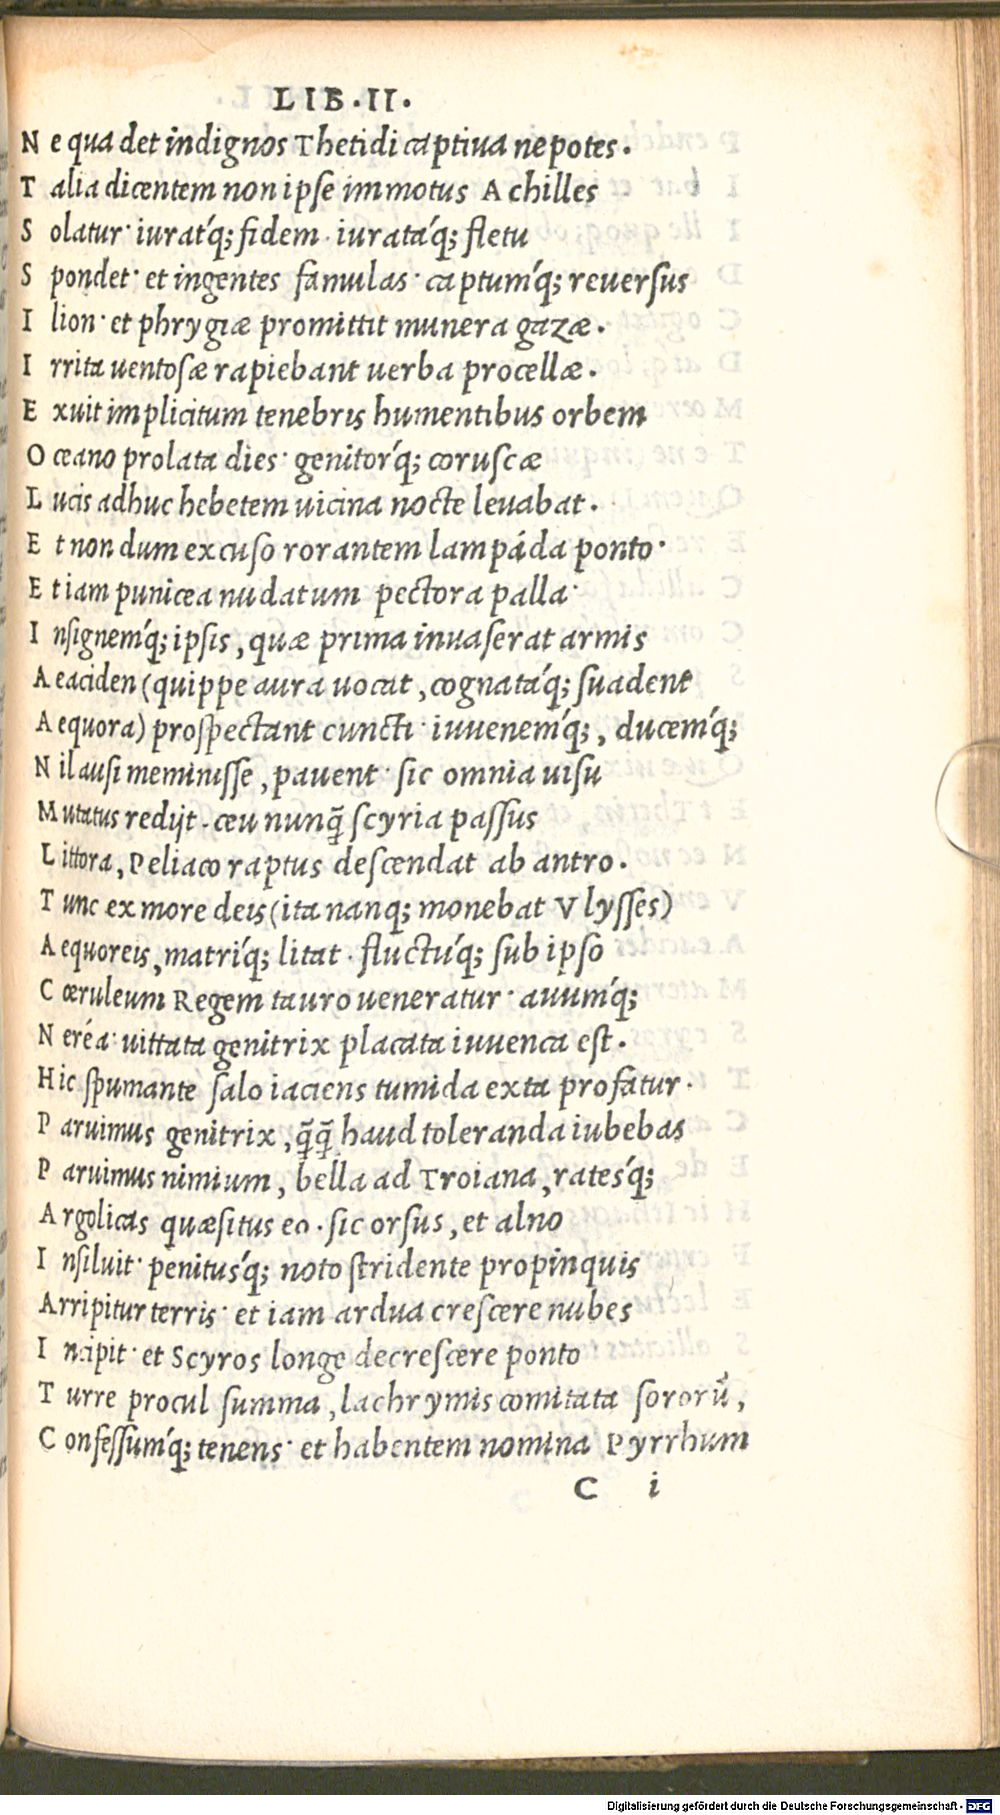 LIB.II.
Ne qua det indignos Thetidi captiua nepotes.
Talia dicentem non ipse immotus Achilles
Solatur· iurat´q; fidem· iurata´q; fletu
Spondet· et ingentes famulas· captum´q; reuersus
Ilion· et phrygiæ promittit munera gazæ.
Irrita uentosæ rapiebant uerba procellæ.
Exuit implicitum tenebris humentibus orbem
Oceano prolata dies· genitor´q; coruscæ
Lucis adhuc hebetem uicina nocte leuabat.
Et non dum excuso rorantem lampáda ponto·
Et iam punicea nudatum pectora palla·
Insignem´q; ipsis, quæ prima inuaserat armis
Aeaciden (quippe aura uocat, cognata´q; suadent
Aequora) prospectant cuncti· iuuenem´q;, ducem´q;
Nil ausi meminisse, pauent· sic omnia uisu
Mutatus redijt. ceu nunq̃ scyria passus
Littora, Peliaco raptus descendat ab antro.
Tunc ex more deis (ita nanq; monebat Vlysses)
Aequoreis, matri´q; litat· fluctu´q; sub ipso
Cœruleum Regem tauro ueneratur· auum´q;
Neréa· uittata genitrix placata iuuenca est.
Hic spumante salo iaciens tumida exta profatur.
Paruimus genitrix, q̃q̃ haud toleranda iubebas
Paruimus nimium, bella ad Troiana, rates´q;
Argolicas quæsitus eo. sic orsus, et alno
Insiluit· penitus´q; noto stridente propinquis
Arripitur terris· et iam ardua crescere nubes
Incipit· et Scyros longe decrescere ponto
Turre procul summa, lachrymis comitata sororũ,
Confessum´q; tenens· et habentem nomina Pyrrhum
C i
Digitalisierung gefördert durch die Deutsche Forschungsgemeinschaft - DFG